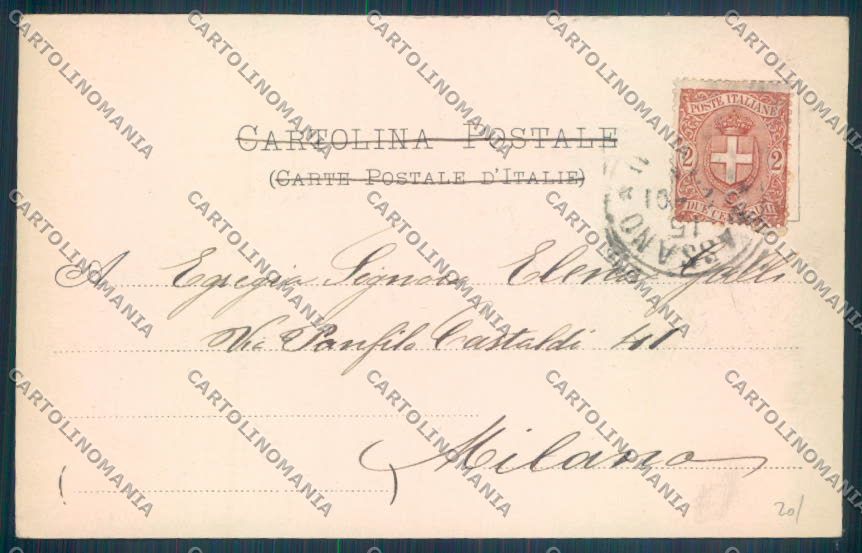 CARTOLINA POSTALE
(CARTE POSTALE D'ITALIE)
POSTE ITALIANE
2 2
DUE CENTESIMI
ASSANO
15
01
A Egregia Signora Elena Galli
Via Panfilo Castaldi 41
Milano
20/
CARTOLINOMANIA